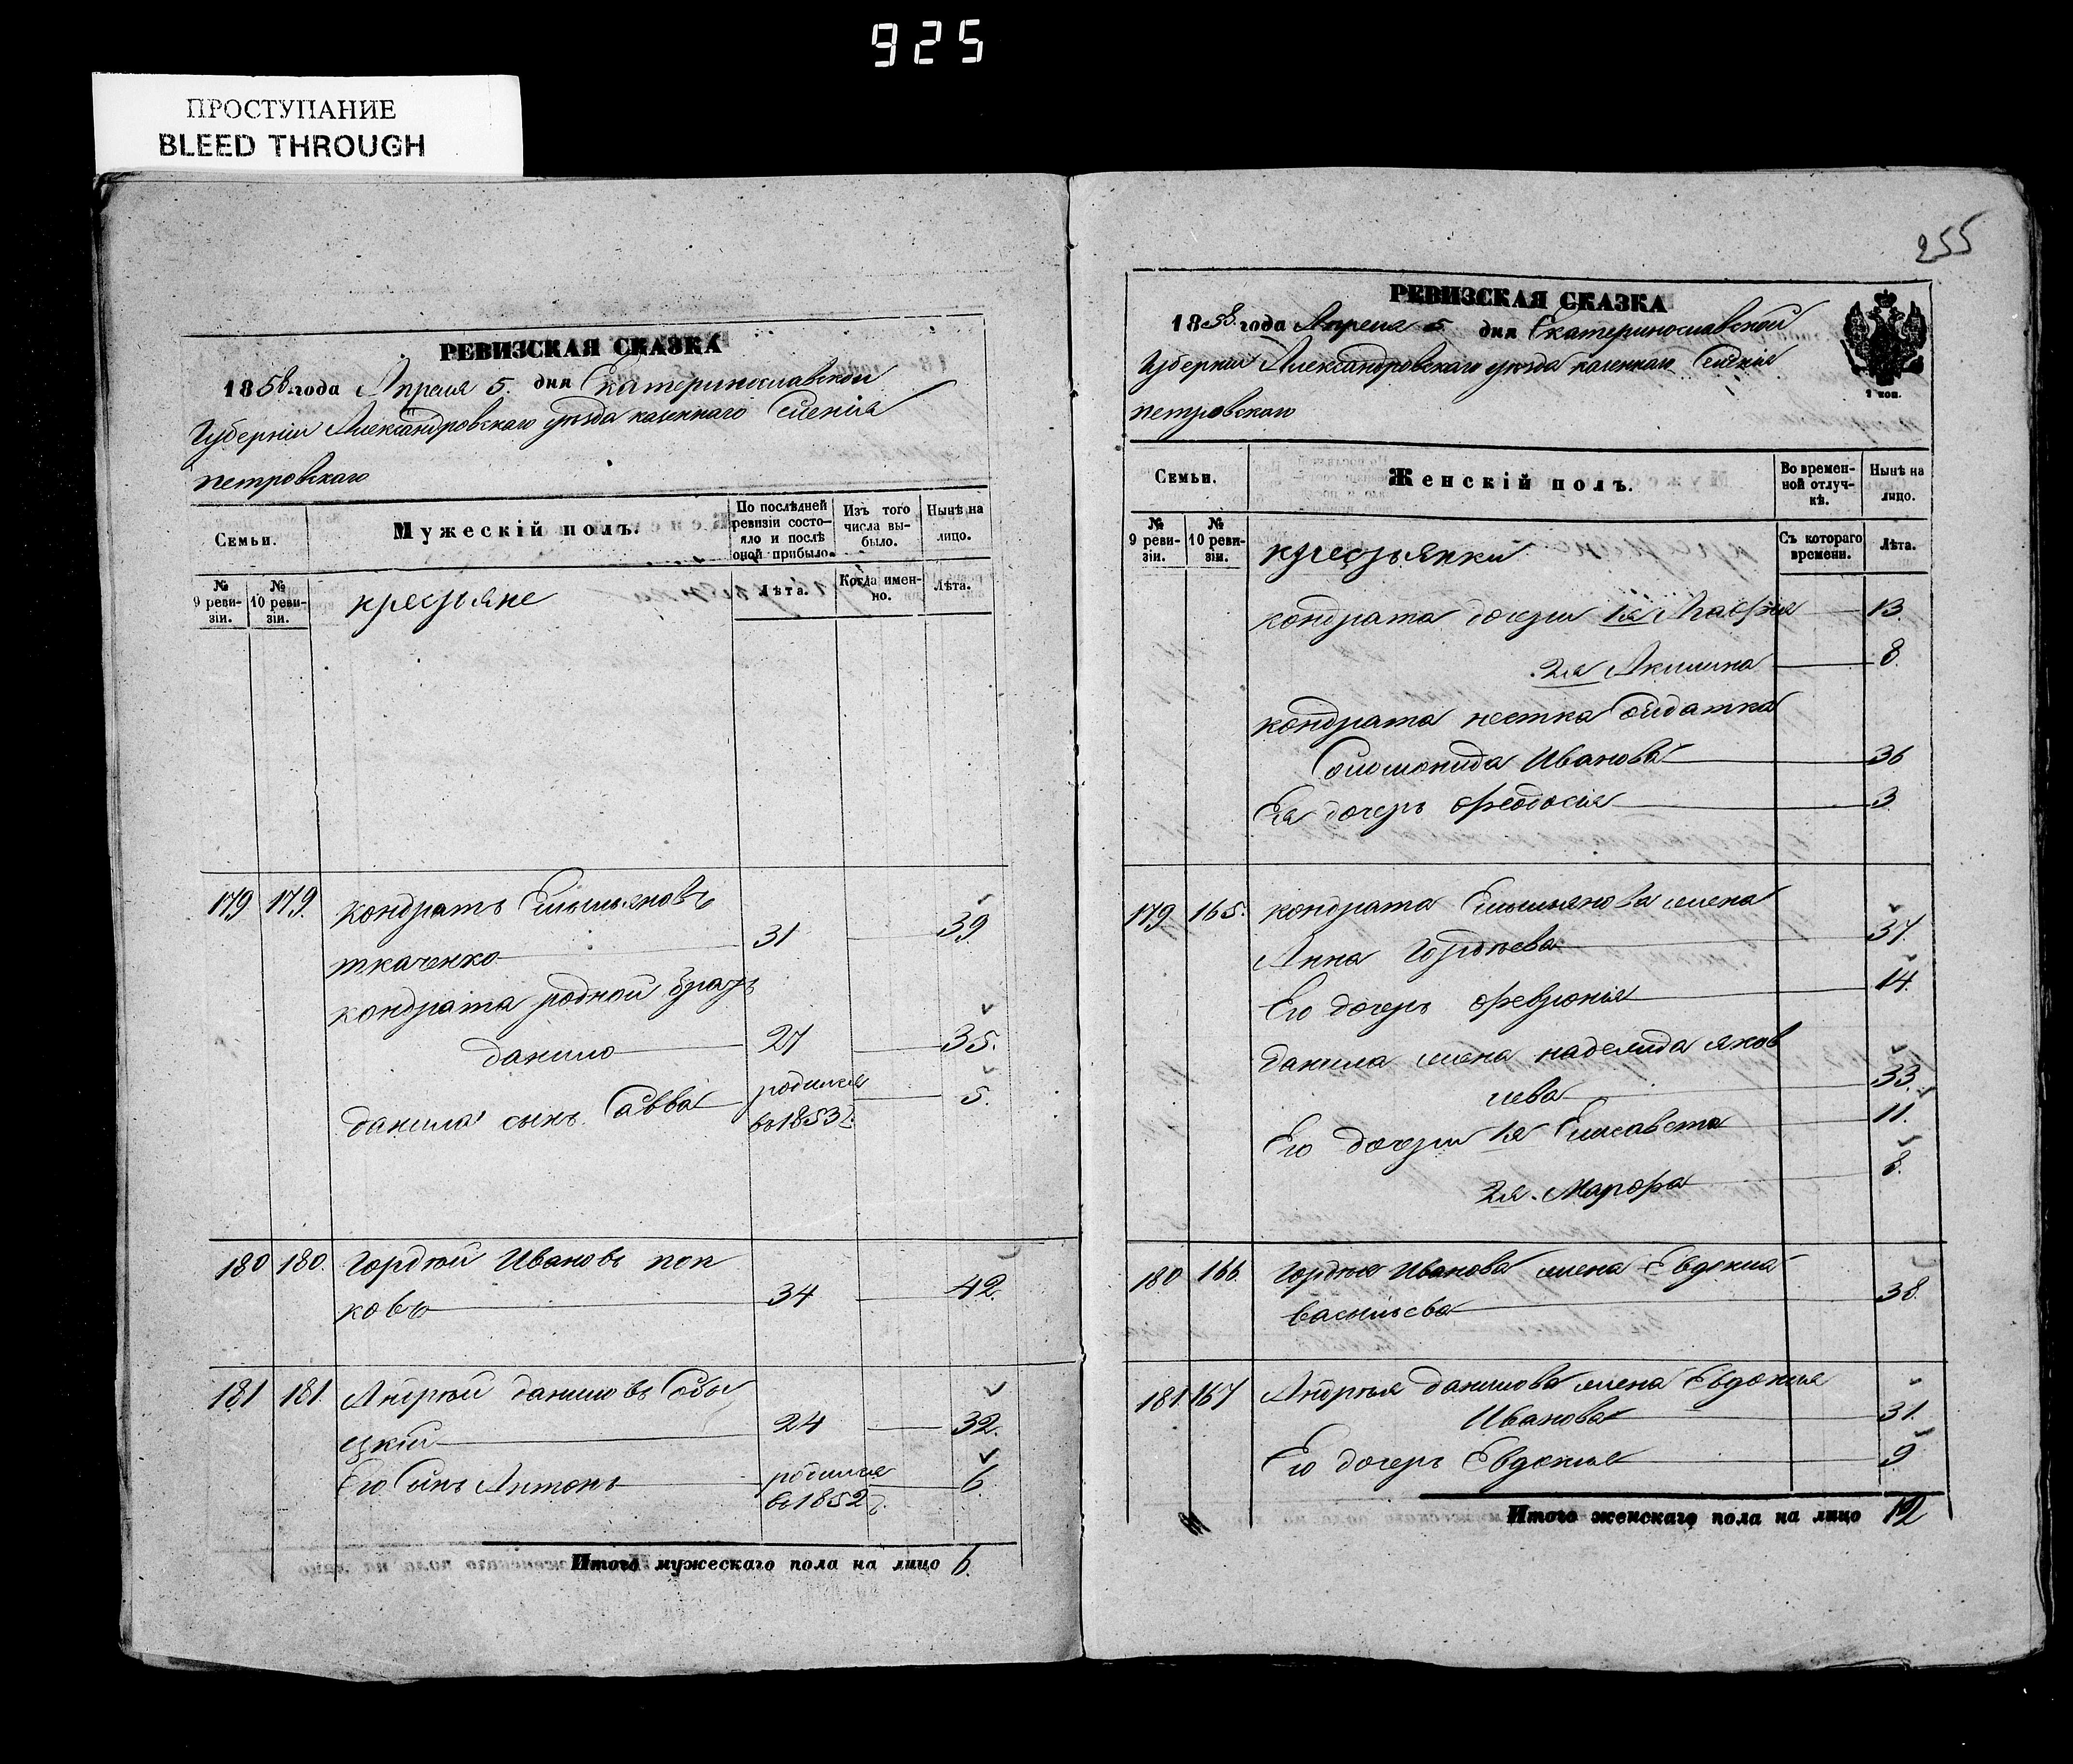 925
ПРОСТУПАНИЕ
BLEED THROUGH
РЕВИЗСКАЯ СКАЗКА
1858 года Апреля 5. дня Екатеринославской
Губерніи Александровскаго уѣзда казеннаго Селенія
петровскаго
Семьи.
Мужескій полъ.
По послѣдней ревизіи состояло и послѣ оной прибыло.
Изъ того числа выбыло.
Нынѣ на лицо.
№ 9 ревизіи.
№ 10 ревизіи.
крестьяне
Лѣта.
Когда именно.
Лѣта.
179 179. Кондратъ Емельяновъ
ткаченко 31 39.
кондрата родной братъ
данило 27 35.
данила сынъ Савва родился въ 1853 г. 5.
180 180. Гордѣй Ивановъ поп
ковъ 34 42.
181 181. Андрѣй даниловъ
цкій 24 32.
Его Сынъ Антонъ родился въ 1852 г. 6
Итого мужескаго пола на лицо 6.
255
РЕВИЗСКАЯ СКАЗКА
1858 года Апреля 5 дня Екатеринославской
Губерніи Александровскаго уѣзда казеннаго Селенія
петровскаго
1 коп.
Семьи.
Женскій полъ.
Во временной отлучкѣ.
Нынѣ на лицо.
№ 9 ревизіи.
№ 10 ревизіи.
крестьянки
Съ котораго времени.
Лѣта.
кондрата дочери 1я 13.
2я Акилина 8.
кондрата нестка Солдатка
Соломонида Иванова 36
Ея дочерь Феодосія 3
179 165. кондрата Емельянова жена
Анна Гордѣева 37.
Его дочерь Февронія 14.
данила жена надежда яков
лева 33.
Его дочери 1я Елисавета 11.
2я. Марфа 8.
180 166. Гордѣя Иванова жена Евдокиа
васильева 38.
181. 167 Андрѣя данилова жена Евдокия
Иванова 31.
Его дочерь Евдокия 9
Итого женскаго пола на лицо 12